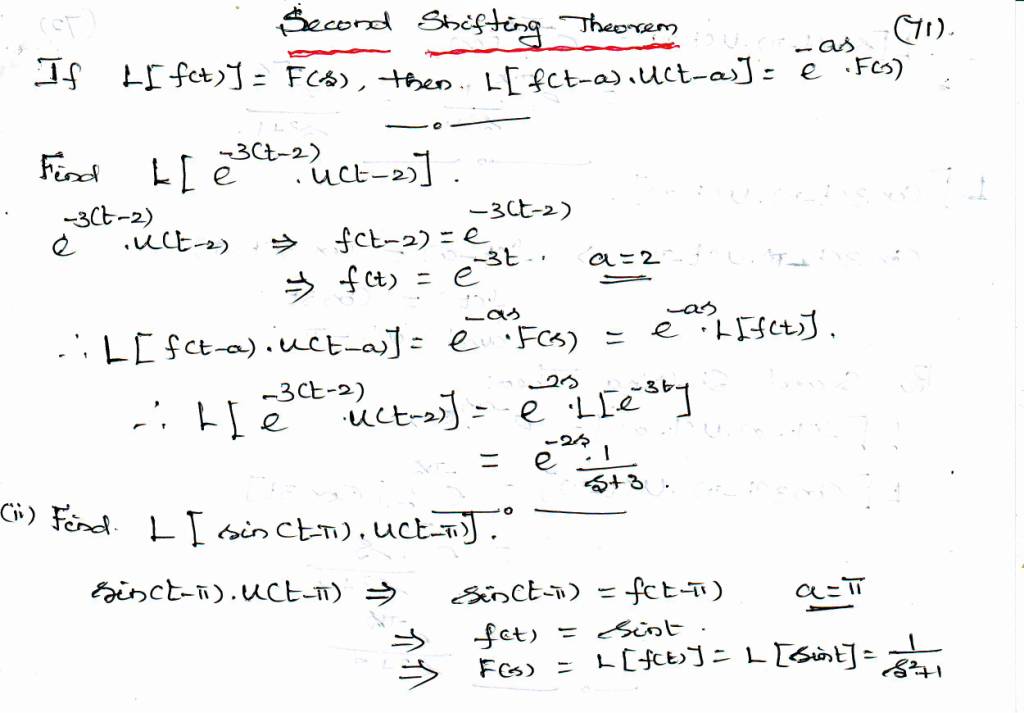 Second Shifting Theorem (71).
If L[f(t)] = F(s), then L[f(t-a).U(t-a)] = e^{-as}.F(s)
Find L[e^{-3(t-2)}.u(t-2)].
e^{-3(t-2)}.u(t-2) ⇒ f(t-2) = e^{-3(t-2)}
⇒ f(t) = e^{-3t}. a=2
∴ L[f(t-a).u(t-a)] = e^{-as}.F(s) = e^{-as}.L[f(t)].
∴ L[e^{-3(t-2)}.u(t-2)] = e^{-2s}.L[e^{-3t}]
= e^{-2s}.1/(s+3).
(ii) Find. L[sin(t-π).U(t-π)].
sin(t-π).U(t-π) ⇒ sin(t-π) = f(t-π) a=π
⇒ f(t) = sint.
⇒ F(s) = L[f(t)] = L[sint] = 1/(s²+1)